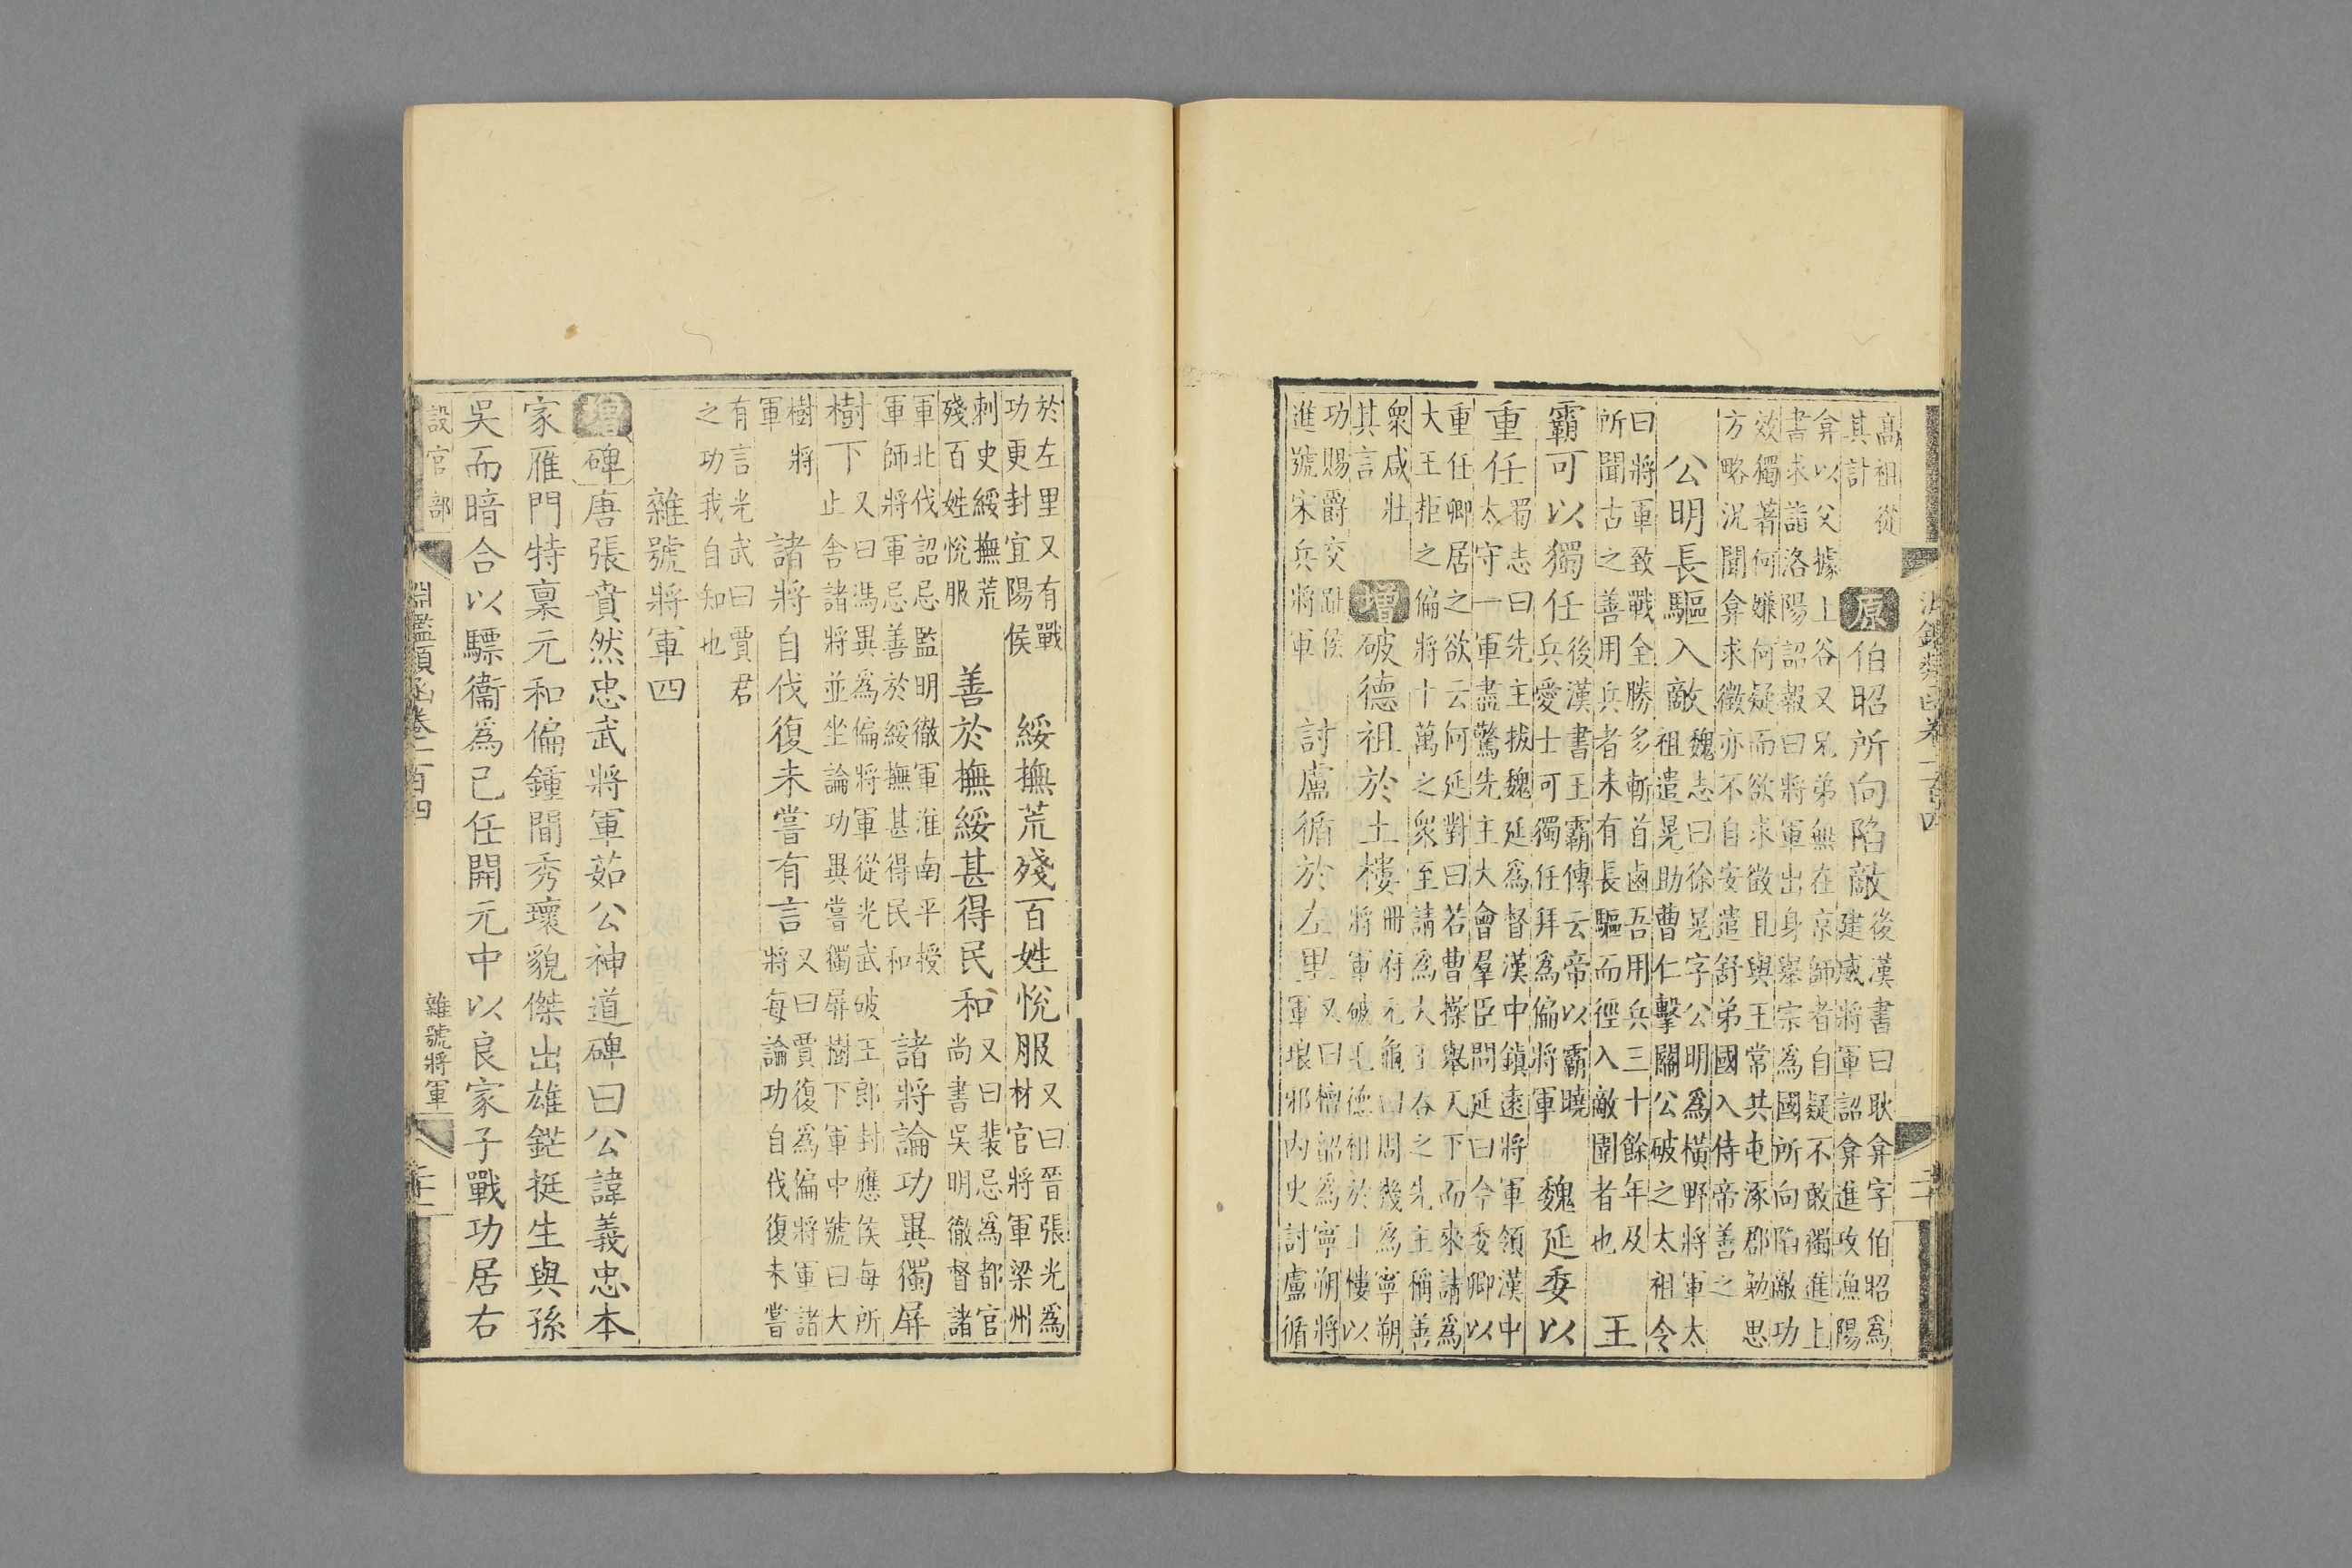 淵鑑類函卷二百四
高祖從
其計
原伯昭所向陷敵
後漢書曰耿弇字伯昭爲
建威將軍詔弇進攻漁陽
弇以父據上谷又兄弟無在京師者自疑不敢獨進上
書求詣洛陽詔報曰將軍出身舉宗爲國所向陷敵功
效獨著何嫌何疑而欲求徵且與王常共屯涿郡勉思
方略況聞弇求徵亦不自安遣舒弟國入侍帝善之
公明長驅入敵
魏志曰徐晃字公明爲橫野將軍太
祖遣晃助曹仁擊關公破之太祖令
曰將軍致戰全勝多斬首鹵吾用兵三十餘年及
所聞古之善用兵者未有長驅而徑入敵圍者也
王
霸可以獨任
後漢書王霸傳云帝以霸曉
兵愛士可獨任拜爲偏將軍
魏延委以
重任
蜀志曰先主拔魏延爲督漢中鎮遠將軍領漢中
太守一軍盡驚先主大會羣臣問延曰今委卿以
重任卿居之欲云何延對曰若曹操舉天下而來請爲
大王拒之偏將十萬之衆至請爲大王吞之先主稱善
衆咸壯
其言
增破德祖於土樓
冊府元龜曰周幾爲寧朔
將軍破毛德祖於土樓以
功賜爵交趾侯
進號宋兵將軍
討盧循於左里
又曰檀韶爲寧朔將
軍琅邪内史討盧循
於左里又有戰
功更封宜陽侯
綏撫荒殘百姓悅服
又曰晉張光爲
材官將軍梁州
刺史綏撫荒
殘百姓悅服
善於撫綏甚得民和
又曰裴忌爲都官
尚書吳明徹督諸
軍北伐詔忌監明徹軍淮南平授
軍師將軍忌善於綏撫甚得民和
諸將論功異獨屏
樹下
又曰馮異爲偏將軍從光武破王郎封應侯每所
止舍諸將並坐論功異嘗獨屏樹下軍中號曰大
樹將
軍
諸將自伐復未嘗有言
又曰賈復爲偏將軍諸
將每論功自伐復未嘗
有言光武曰賈君
之功我自知也
雜號將軍四
增碑唐張賁然忠武將軍茹公神道碑曰公諱義忠本
家雁門特稟元和偏鍾間秀瓌貌傑出雄鋩挺生與孫
吳而暗合以驃衞爲已任開元中以良家子戰功居右
設官部
淵鑑類函卷二百四
雜號將軍